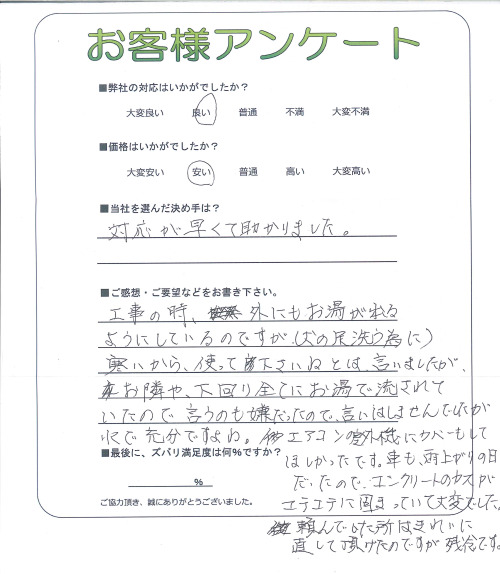 お客様アンケート
■弊社の対応はいかがでしたか？
大変良い 良い 普通 不満 大変不満
■価格はいかがでしたか？
大変安い 安い 普通 高い 大変高い
■当社を選んだ決め手は？
対応が早くて助かりました。
■ご感想・ご要望などをお書き下さい。
工事の時、外にもお湯が出る
ようにしているのですが、(犬の足洗う為に)
寒いから、使って下さいねとは、言いましたが、
お隣や、下回り全てにお湯で流されて
いたので言うのも嫌だったので、言いはしませんでしたが
水で充分ですよね。エアコンの室外機にカバーもして
■最後に、ズバリ満足度は何%ですか？
ほしかったです。車も、雨上がりの日
だったので、コンクリートのカスが
%
エテエテに固まっていて大変でした。
ご協力頂き、誠にありがとうございました。
頼んでいた所はきれいに
直して頂けたのですが残念です。